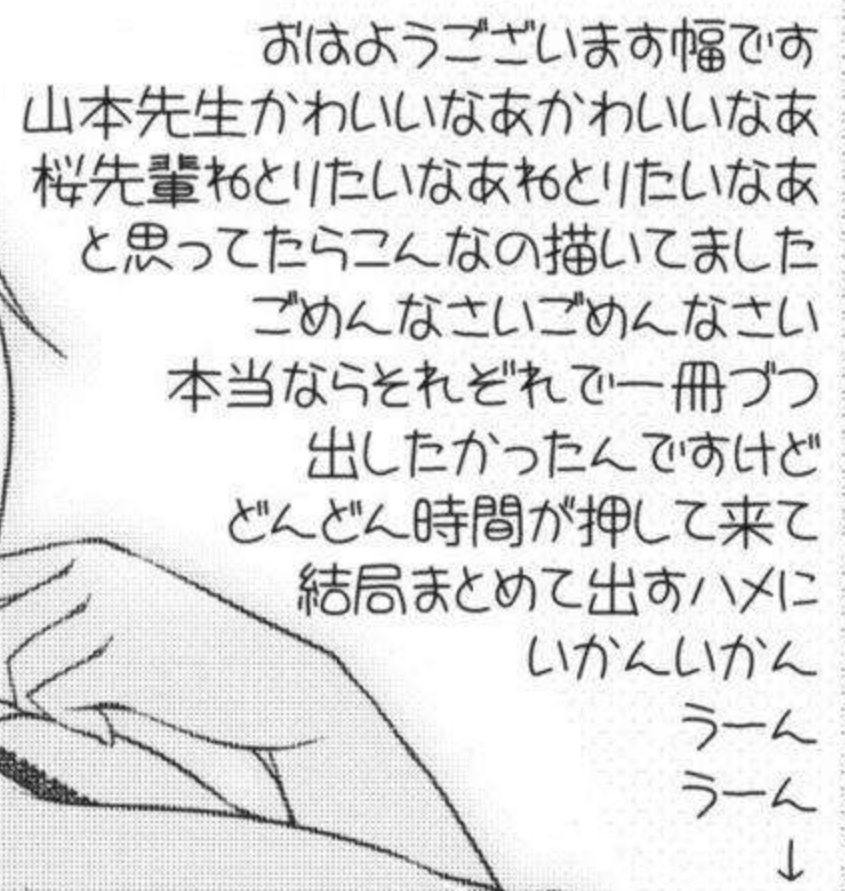 おはようございます幅です
山本先生かわいいなあかわいいなあ
桜先輩ねとりたいなあねとりたいなあ
と思ってたらこんなの描いてました
ごめんなさいごめんなさい
本当ならそれぞれで一冊づつ
出したかったんですけど
どんどん時間が押して来て
結局まとめて出すハメに
いかんいかん
うーん
うーん
↓